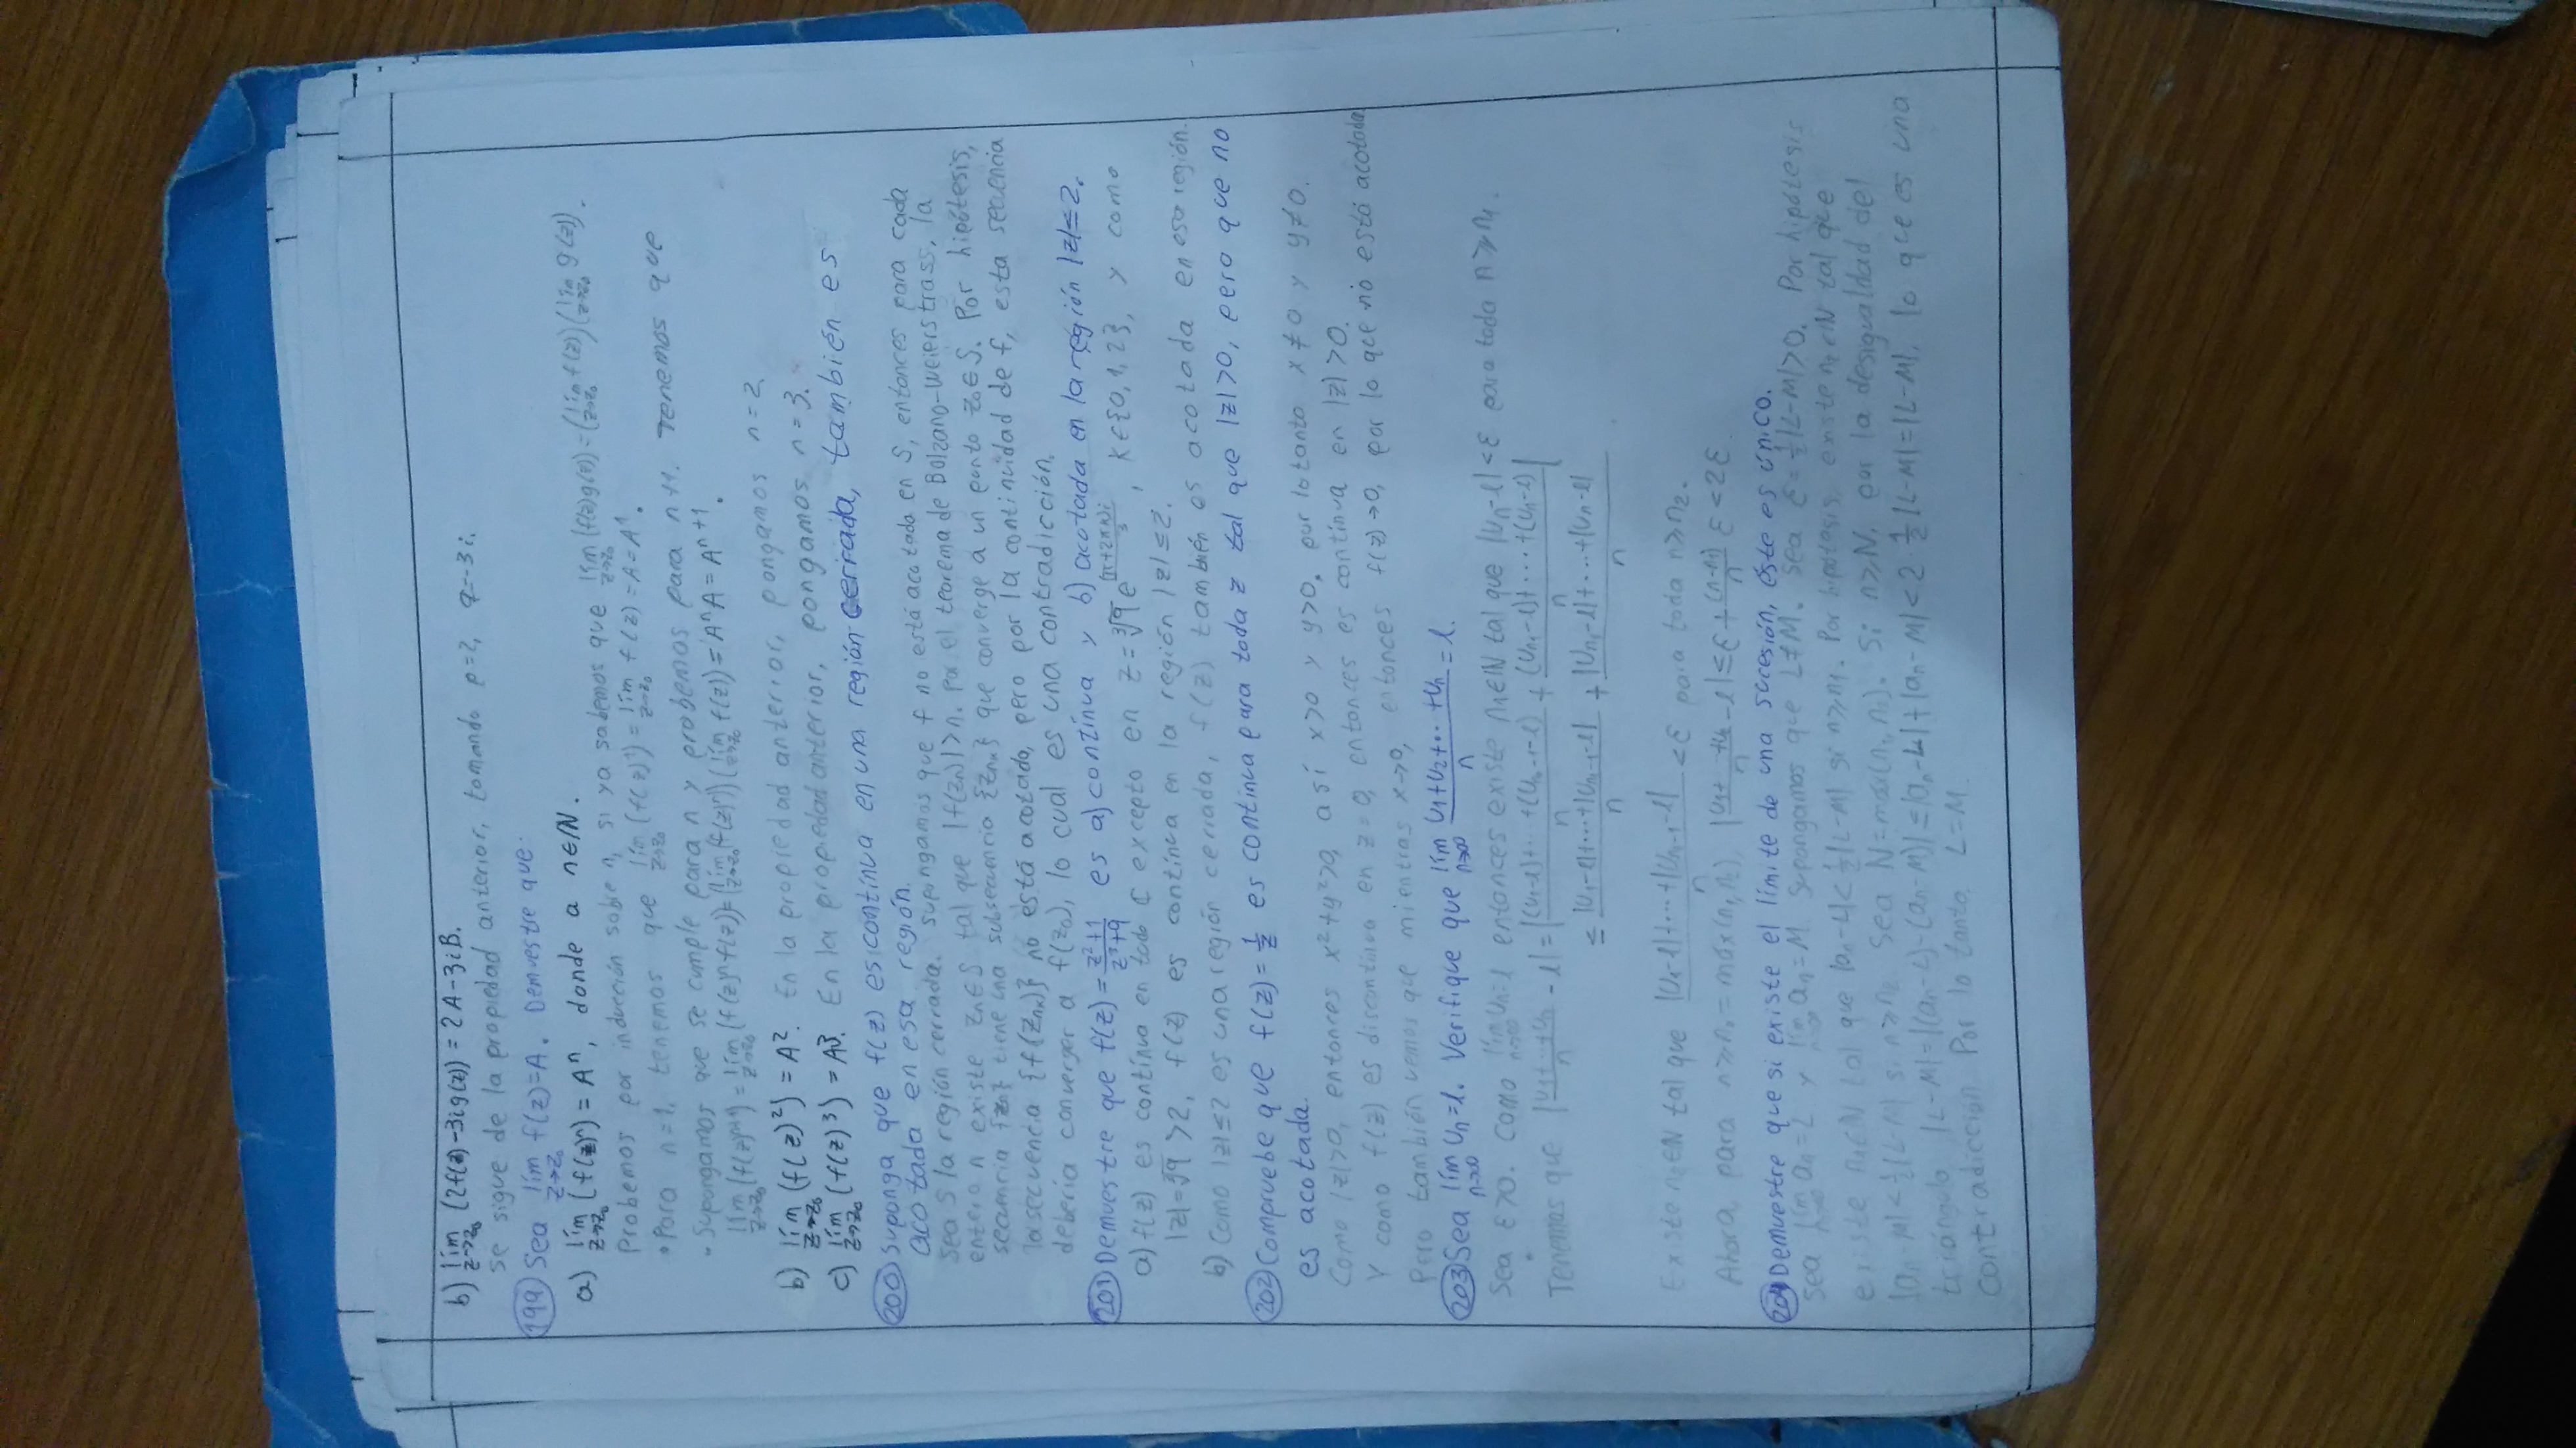 b) lím z→z₀ (2f(z)-3ig(z)) = 2A-3iB.
Se sigue de la propiedad anterior, tomando p=2, q=-3i.
199 Sea lím z→z₀ f(z)=A. Demuestre que:
a) lím z→z₀ (f(z)ⁿ) = Aⁿ, donde a n∈ℕ.
Probemos por inducción sobre n, si ya sabemos que lím z→z₀ (f(z)g(z)) = (lím z→z₀ f(z))(lím z→z₀ g(z)).
• Para n=1, tenemos que lím z→z₀ (f(z)¹) = lím z→z₀ f(z) = A = A¹.
• Supongamos que se cumple para n y probemos para n+1. Tenemos que
lím z→z₀ (f(z)ⁿ⁺¹) = lím z→z₀ (f(z)ⁿ f(z)) = (lím z→z₀ (f(z)ⁿ)) (lím z→z₀ f(z)) = AⁿA = Aⁿ⁺¹.
b) lím z→z₀ (f(z)²) = A². En la propiedad anterior, pongamos n=2
c) lím z→z₀ (f(z)³) = A³. En la propiedad anterior, pongamos n=3.
200 Suponga que f(z) es contínua en una región cerrada, también es
acotada en esa región.
Sea S la región cerrada. Supongamos que f no está acotada en S, entonces para cada
entero n existe zₙ∈S tal que |f(zₙ)|>n. Por el teorema de Bolzano-Weierstrass, la
secuencia {zₙ} tiene una subsecuencia {zₙₖ} que converge a un punto z₀∈S. Por hipótesis,
la secuencia {f(zₙₖ)} no está acotado, pero por la continuidad de f, esta secuencia
debería converger a f(z₀), lo cual es una contradicción.
201 Demuestre que f(z) = (z²+1)/(z³+9) es a) contínua y b) acotada en la región |z|≤2.
a) f(z) es contínua en todo ℂ excepto en z = ∛9 e^((π+2πk)i/3), k∈{0,1,2}, y como
|z|=∛9 >2, f(z) es contínua en la región |z|≤2.
b) Como |z|≤2 es una región cerrada, f(z) también es acotada en esa región.
202 Compruebe que f(z) = 1/z es contínua para toda z tal que |z|>0, pero que no
es acotada.
Como |z|>0, entonces x²+y²>0, así x>0 y y>0, por lo tanto x≠0 y y≠0.
Y como f(z) es discontínua en z=0, entonces es contínua en |z|>0.
Pero también vemos que mientras x→0, entonces f(z)→0, por lo que no está acotada
203 Sea lím n→∞ Uₙ=l. Verifique que lím n→∞ (U₁+U₂+··+Uₙ)/n = l.
Sea ε>0. Como lím n→∞ Uₙ=l entonces existe n₁∈ℕ tal que |Uₙ-l|<ε para toda n≥n₁.
Tenemos que |(U₁+···+Uₙ)/n - l| = |((U₁-l)+···+(Uₙ₁₋₁-l))/n + ((Uₙ₁-l)+···+(Uₙ-l))/n|
≤ (|U₁-l|+···+|Uₙ₁₋₁-l|)/n + (|Uₙ₁-l|+···+|Uₙ-l|)/n
Existe n₂∈ℕ tal que (|U₁-l|+···+|Uₙ₁₋₁-l|)/n < ε para toda n≥n₂.
Ahora, para n≥n₀=máx(n₁,n₂), |(U₁+···+Uₙ)/n - l| ≤ ε + ((n-n₁)/n) ε < 2ε
204 Demuestre que si existe el límite de una sucesión, éste es único.
Sea lím n→∞ aₙ=L y lím n→∞ aₙ=M. Supongamos que L≠M. Sea ε=½|L-M|>0. Por hipótesis
existe n₁∈ℕ tal que |aₙ-L|<½|L-M| si n≥n₁. Por hipótesis, existe n₂∈ℕ tal que
|aₙ-M|<½|L-M| si n≥n₂. Sea N=máx(n₁,n₂). Si n≥N, por la desigualdad del
triángulo |L-M|=|(aₙ-L)-(aₙ-M)|≤|aₙ-L|+|aₙ-M|<2·½|L-M|=|L-M|, lo que es una
contradicción. Por lo tanto, L=M.